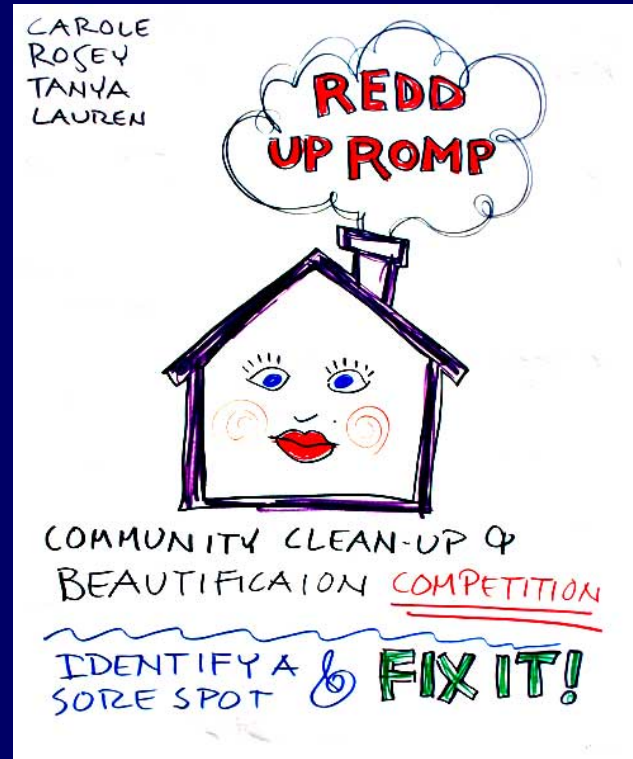 CAROLE
ROSEY
TANYA
LAUREN
REDD
UP ROMP
COMMUNITY CLEAN-UP &
BEAUTIFICAION COMPETITION
IDENTIFY A & FIX IT!
SORE SPOT